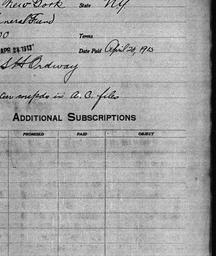 New York State NY
General Fund
Terms
APR 24 1913 Date Paid April 24, 1913
S H Ordway
in A. C. files
ADDITIONAL SUBSCRIPTIONS
PROMISED PAID OBJECT